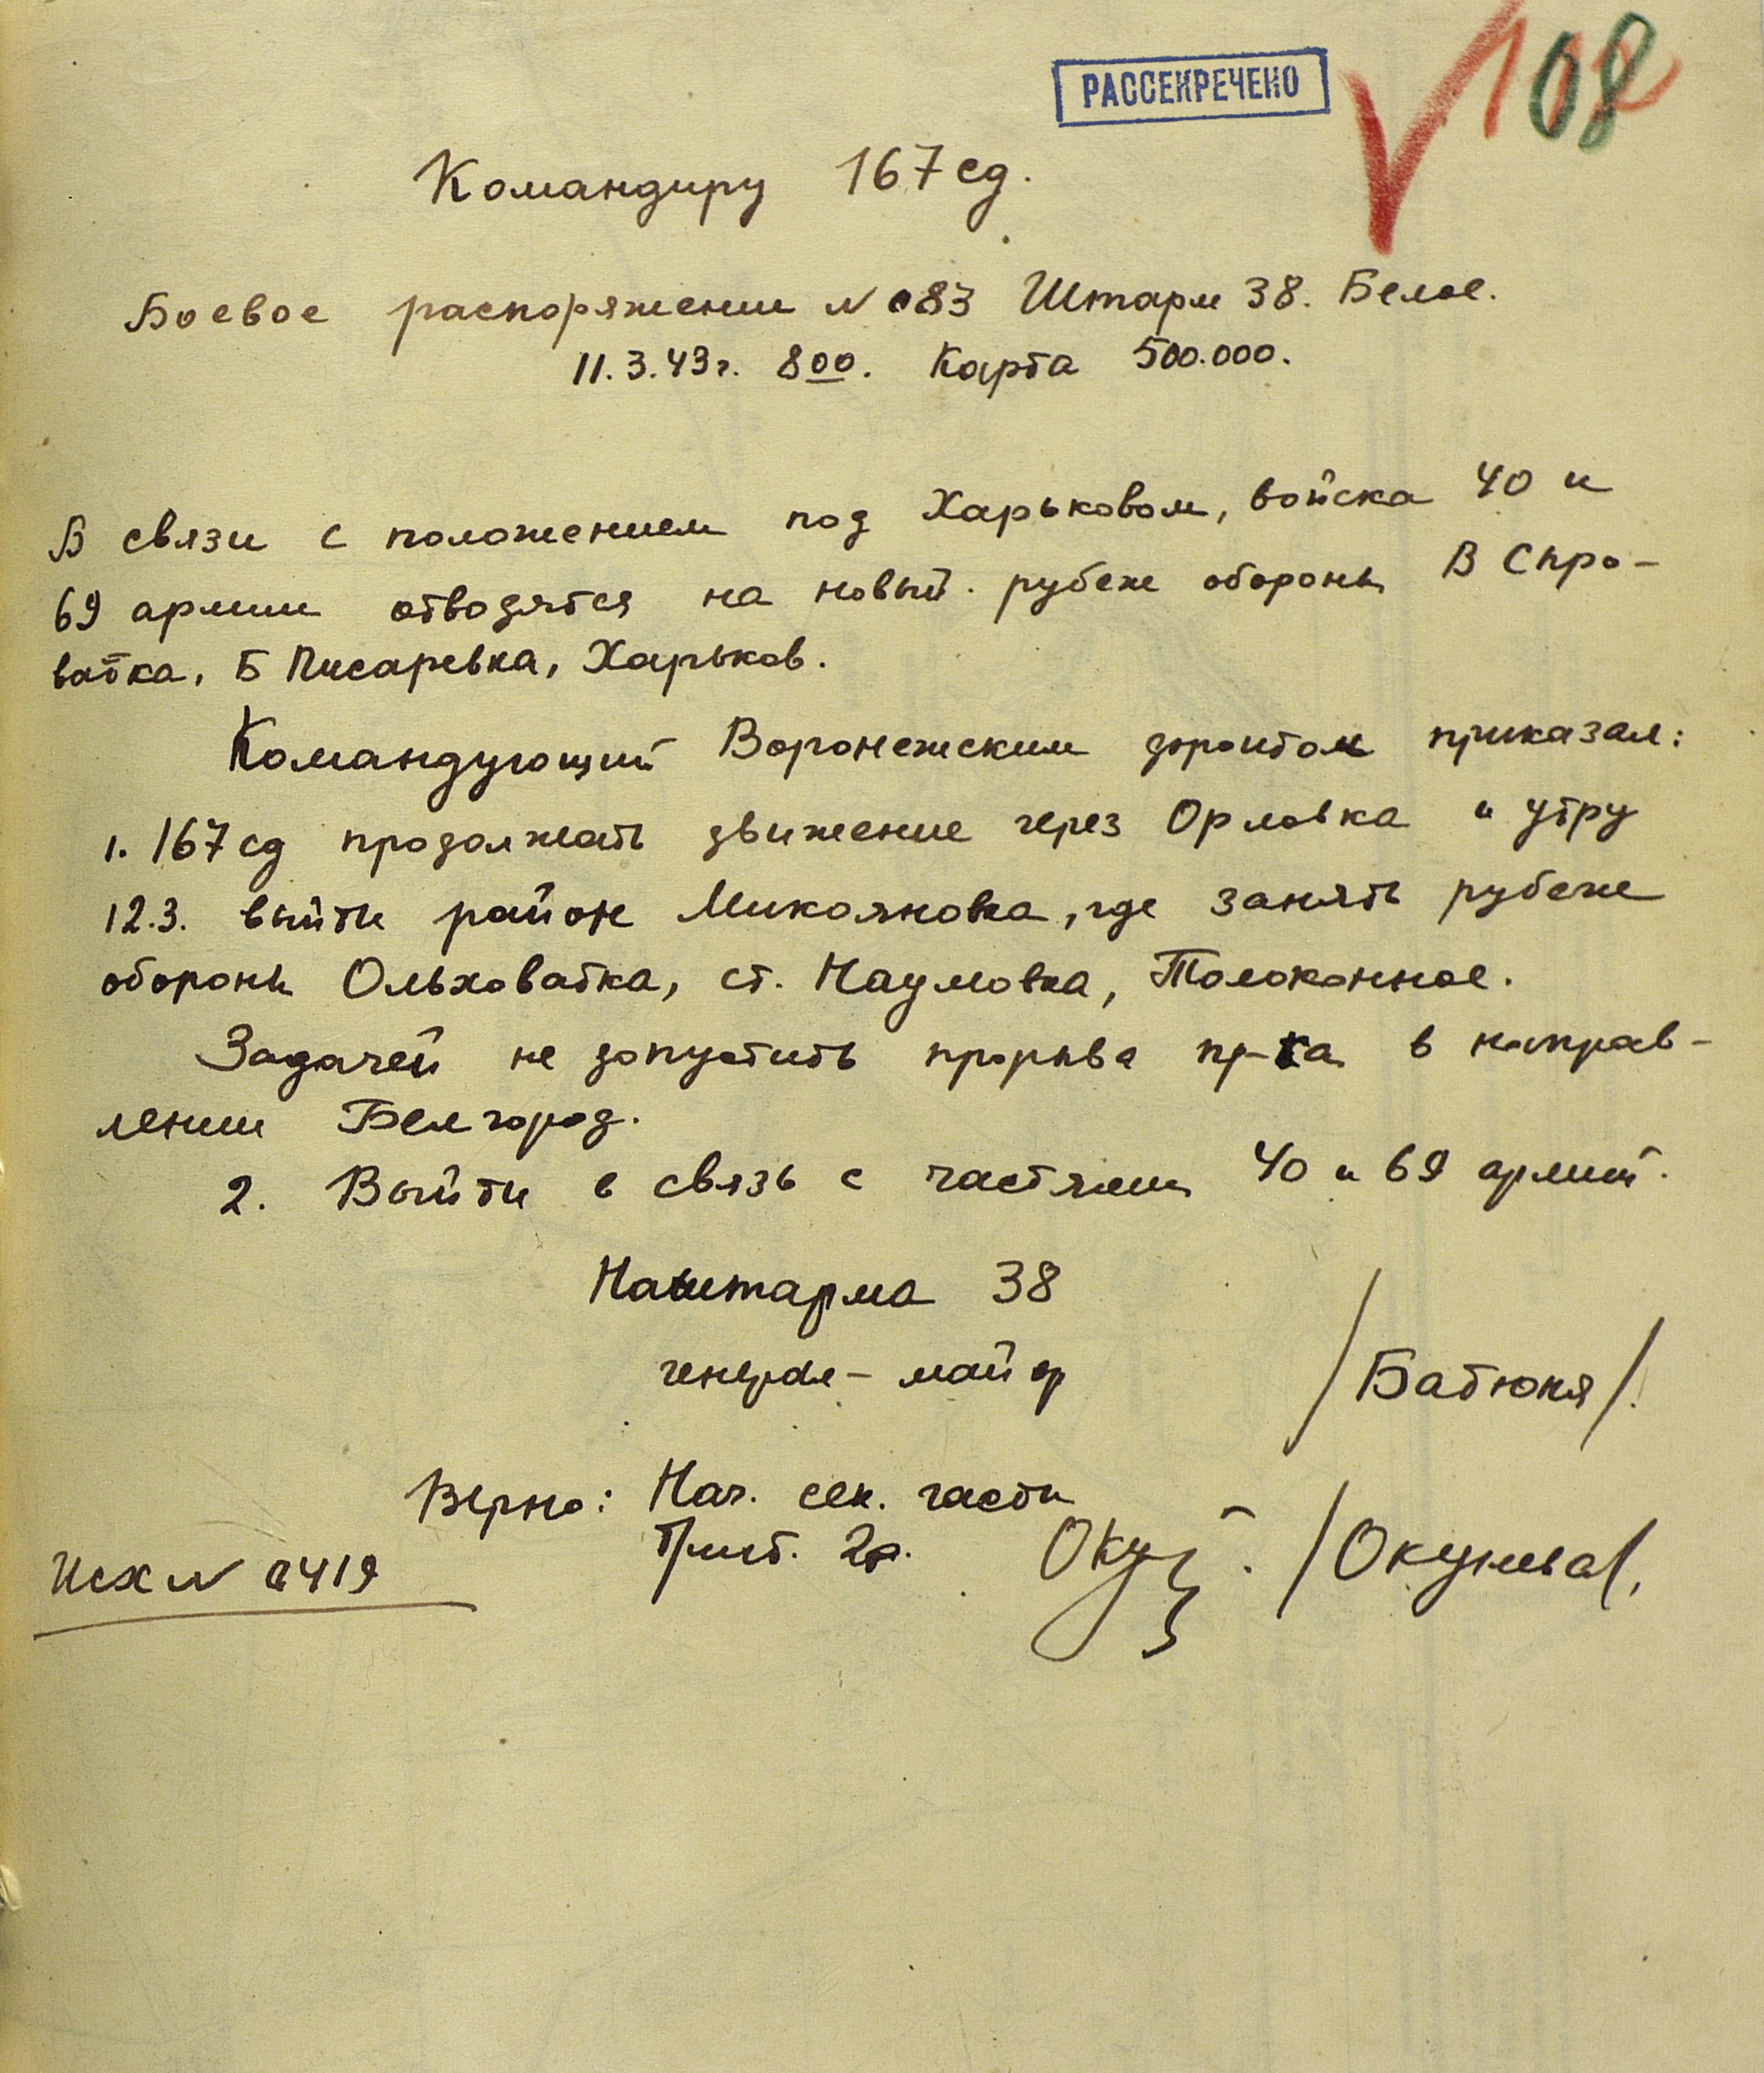 РАССЕКРЕЧЕНО
108
Командиру 167 сд.
Боевое распоряжении № 083 Штарм 38. Белое.
11.3.43г. 8 00. Карта 500.000.
В связи с положением под Харьковом, войска 40 и
69 армии отводятся на новый рубеж обороны В Сыро-
ватка, Б Писаревка, Харьков.
Командующий Воронежским фронтом приказал:
1. 167 сд продолжать движение через Орловка и утру
12.3. выйти район Микояновка, где занять рубеж
обороны Ольховатка, ст. Наумовка, Толоконное.
Задачей не допустить прорыва пр-ка в направ-
лении Белгород.
2. Выйти в связь с частями 40 и 69 армий.
Наштарма 38
генерал-майор /Батюня/.
Верно: Нач. сек. части
/Окунева/.
Исх № 0419